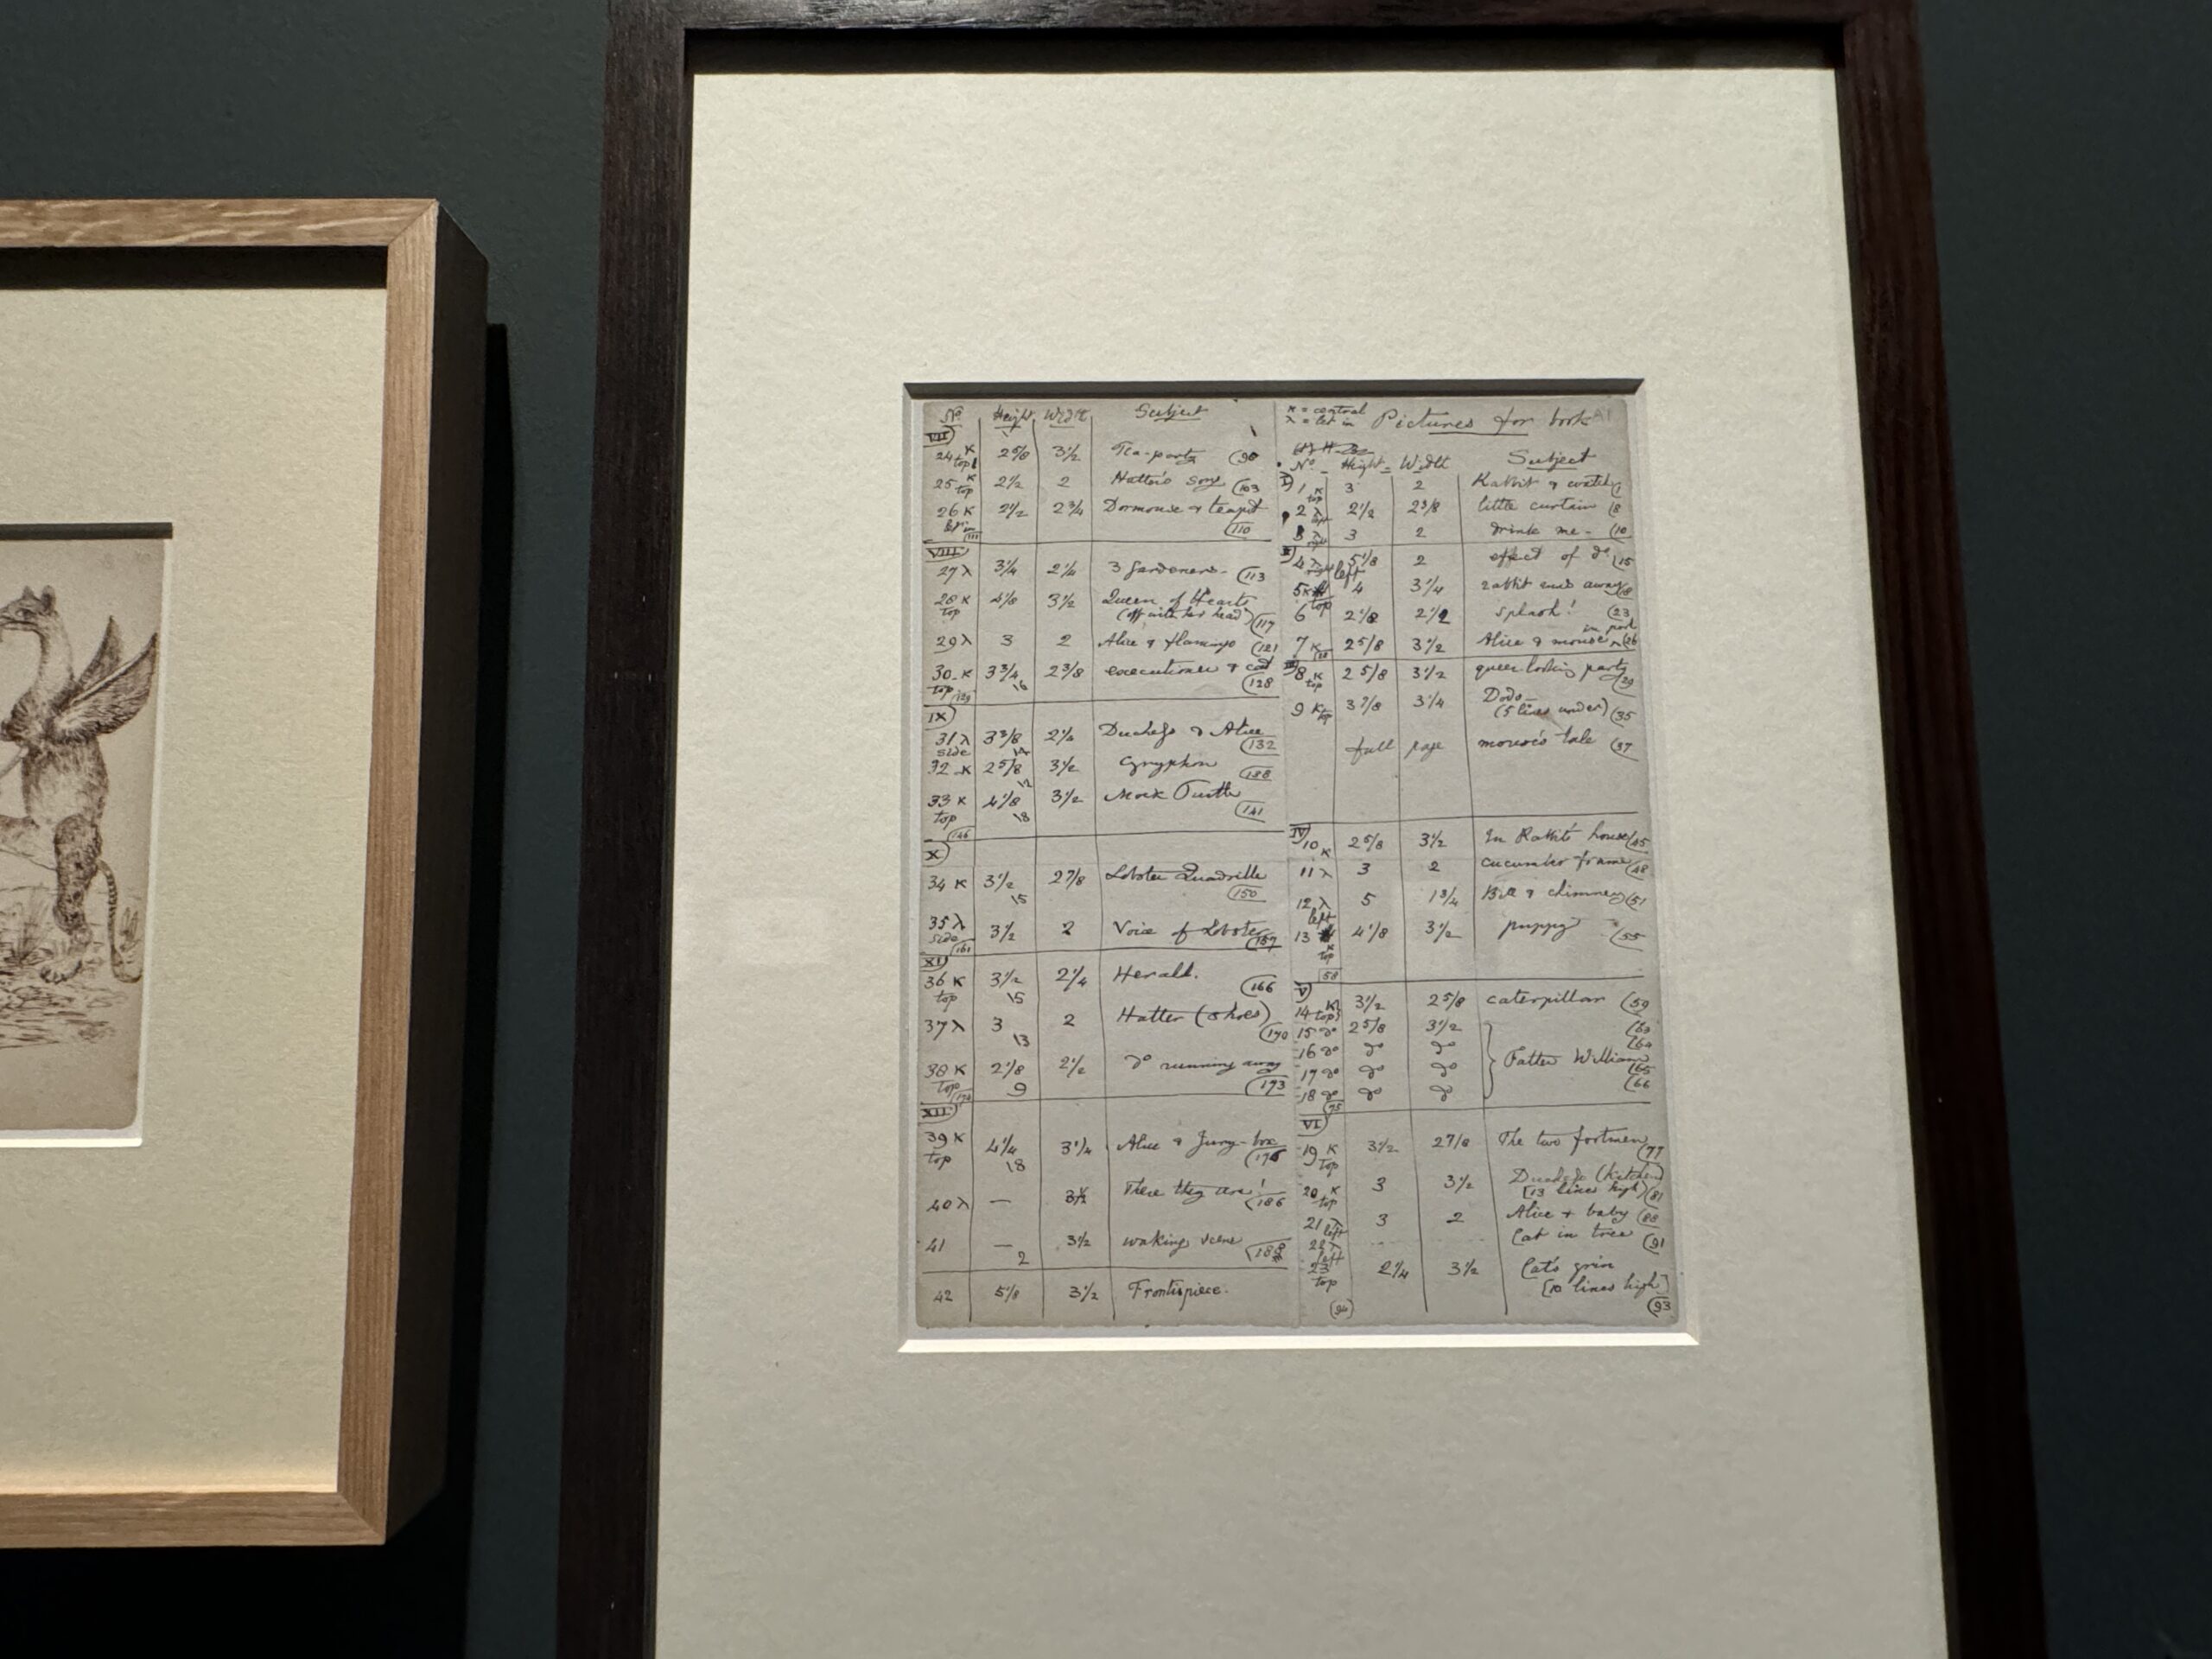 No. Height Width Subject
VII)
24 κ top 2 5/8 3 1/2 Tea-party (90
25 κ top 2 1/2 2 Hatter's song (103
26 κ 2 1/2 2 3/4 Dormouse & teapot
(110
(111
VIII)
27 λ 3 1/4 2 1/4 3 gardeners - (113
28 κ 4 1/8 3 1/2 Queen of Hearts
top (off with her head) (117
29 λ 3 2 Alice & flamingo (121
30 κ 3 3/4 2 3/8 executioner & cat
top 16 (128
IX)
31 λ 3 3/8 2 1/4 Duchess & Alice
side 14 (132
32 κ 2 5/8 3 1/2 Gryphon (138
12
33 κ 4 1/8 3 1/2 Mock Turtle
top 18 (141
(146
X)
34 κ 3 1/2 2 7/8 Lobster Quadrille
15 (150
35 λ 3 1/2 2 Voice of Lobster
side (157
(161
XI)
36 κ 3 1/2 2 1/4 Herald.
top 15 (166
37 λ 3 2 Hatter (shoes)
13 (170
38 κ 2 1/8 2 1/2 do running away
top 9 (173
XII)
39 κ 4 1/4 3 1/4 Alice & Jury-box
top 18 (176
40 λ — There they are! (186
41 — 3 1/2 waking scene (188
2
42 5 1/8 3 1/2 Frontispiece.
κ = central
λ = let in Pictures for book
No. Height Width Subject
I) 1 κ 3 2 Rabbit & watch (1
top
2 λ 2 1/2 2 3/8 little curtain (8
3 λ 3 2 drink me - (10
right
II) 4 λ 5 1/8 2 effect of do (15
left
5 4 3 1/4 rabbit runs away (18
top
6 2 1/8 2 1/2 splash! (23
7 κ 2 5/8 3 1/2 Alice & mouse in pool (26
III) 8 κ 2 5/8 3 1/2 queer looking party
top (29
9 κ top 3 7/8 3 1/4 Dodo
(5 lines under) (35
full page mouse's tale (37
IV) 10 κ 2 5/8 3 1/2 In Rabbit's house (45
11 λ 3 2 cucumber frame (48
12 λ 5 1 3/4 Bill & chimney (51
left
13 4 1/8 3 1/2 puppy (55
κ
top
(58
V)
14 κ top 3 1/2 2 5/8 caterpillar (59
15 do 2 5/8 3 1/2 (63
16 do do do
17 do do do Father William (65
18 do do do (66
(75
VI)
19 κ 3 1/2 2 7/8 The two footmen (77
top
20 κ 3 3 1/2 Duchess (kitchen)
top [13 lines high] (81
21 left 3 2 Alice & baby (88
22 λ left Cat in tree (91
23 2 1/4 3 1/2 Cat's grin
top [10 lines high]
(93